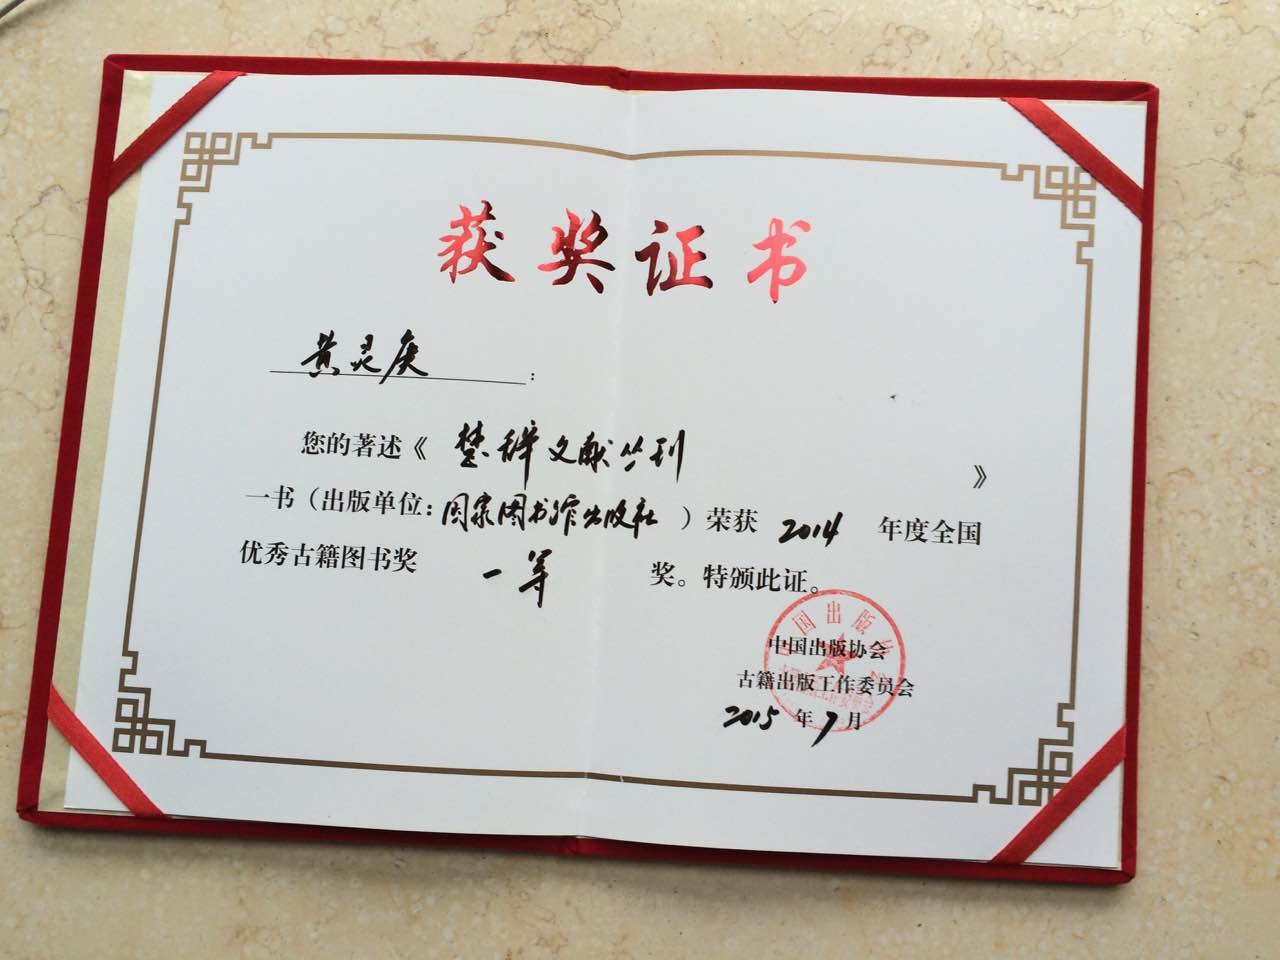 获奖证书
黄灵庚：
您的著述《楚辞文献丛刊》
一书（出版单位：国家图书馆出版社）荣获 2014 年度全国
优秀古籍图书奖 一等 奖。特颁此证。
中国出版协会
古籍出版工作委员会
2015 年 7 月
中国出版协会